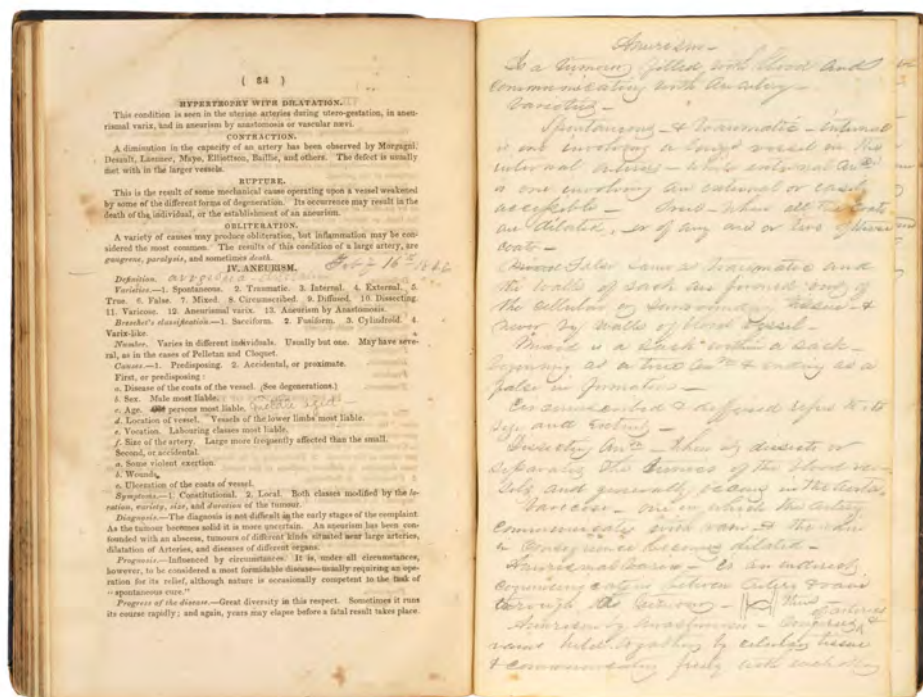 ( 84 )
HYPERTROPHY WITH DILATATION.
This condition is seen in the uterine arteries during utero-gestation, in aneu-
rismal varix, and in aneurism by anastomosis or vascular nævi.
CONTRACTION.
A diminution in the capacity of an artery has been observed by Morgagni,
Desault, Lasmer, Mayo, Elliottson, Baillie, and others. The defect is usually
met with in the larger vessels.
RUPTURE.
This is the result of some mechanical cause operating upon a vessel weakened
by some of the different forms of degeneration. Its occurrence may result in the
death of the individual, or the establishment of an aneurism.
OBLITERATION.
A variety of causes may produce obliteration, but inflammation may be con-
sidered the most common. The results of this condition of a large artery, are
gangrene, paralysis, and sometimes death.
IV. ANEURISM.
Definition.
Varieties.—1. Spontaneous. 2. Traumatic. 3. Internal. 4. External. 5.
True. 6. False. 7. Mixed. 8. Circumscribed. 9. Diffused. 10. Dissecting.
11. Varicose. 12. Aneurismal varix. 13. Aneurism by Anastomosis.
Breschet's classification.—1. Sacciform. 2. Fusiform. 3. Cylindroid. 4.
Varix-like.
Number. Varies in different individuals. Usually but one. May have seve-
ral, as in the cases of Pelletan and Cloquet.
Causes.—1. Predisposing. 2. Accidental, or proximate.
First, or predisposing:
a. Disease of the coats of the vessel. (See degenerations.)
b. Sex. Male most liable.
c. Age. persons most liable. middle aged—
d. Location of vessel. Vessels of the lower limbs most liable.
e. Vocation. Labouring classes most liable.
f. Size of the artery. Large more frequently affected than the small.
Second, or accidental.
a. Some violent exertion.
b. Wounds.
c. Ulceration of the coats of vessel.
Symptoms.—1. Constitutional. 2. Local. Both classes modified by the lo-
cation, variety, size, and duration of the tumour.
Diagnosis.—The diagnosis is not difficult in the early stages of the complaint.
As the tumour becomes solid it is more uncertain. An aneurism has been con-
founded with an abscess, tumours of different kinds situated near large arteries,
dilatation of Arteries, and diseases of different organs.
Prognosis.—Influenced by circumstances. It is, under all circumstances,
however, to be considered a most formidable disease—usually requiring an ope-
ration for its relief, although nature is occasionally competent to the task of
"spontaneous cure."
Progress of the disease.—Great diversity in this respect. Sometimes it runs
its course rapidly; and again, years may elapse before a fatal result takes place.
Aneurism—
Is a tumour filled with blood and
communicating with an artery—
Varieties—
Spontaneous—& Traumatic—internal
is one involving a vessel in the
internal — while external
is one involving an external or easily
accessible — True—when all the coats
are dilated, or of any one or two of
coats—
False same as traumatic and
the walls of sack are formed out of
the cellular or surrounding tissue—&
never by walls of blood vessel.
Mixed is a sack within a sack—
beginning as a true & ending as a
false in formation—
Circumscribed & diffused refers to its
size and extent—
Dissecting — When it dissects or
separates the of the blood ves-
sels and generally in the aorta.
Varicose— one in which the artery
communicates with vein & the vein
in consequence becomes dilated—
Aneurismal Varix— Is an indirect
communication between artery & vein
through the — Thus
Aneurism by Anastomosis— of arteries &
veins held together by cellular tissue
& communicating freely with each other